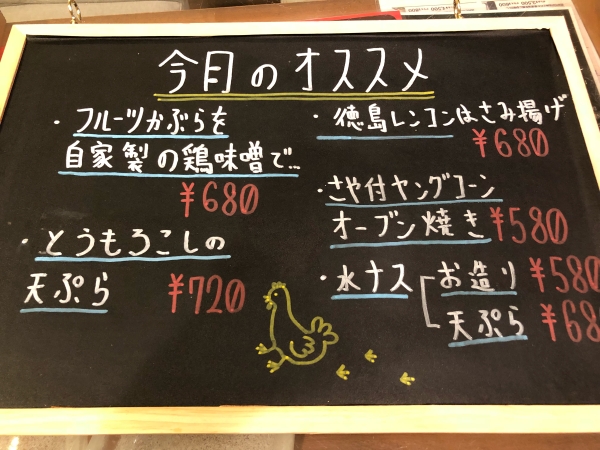 今月のオススメ
・フルーツかぶらを
自家製の鶏味噌で…
¥680
・とうもろこしの
天ぷら ¥720
・徳島レンコンはさみ揚げ
¥680
・さや付ヤングコーン
オーブン焼き ¥580
・水ナス お造り ¥580
天ぷら